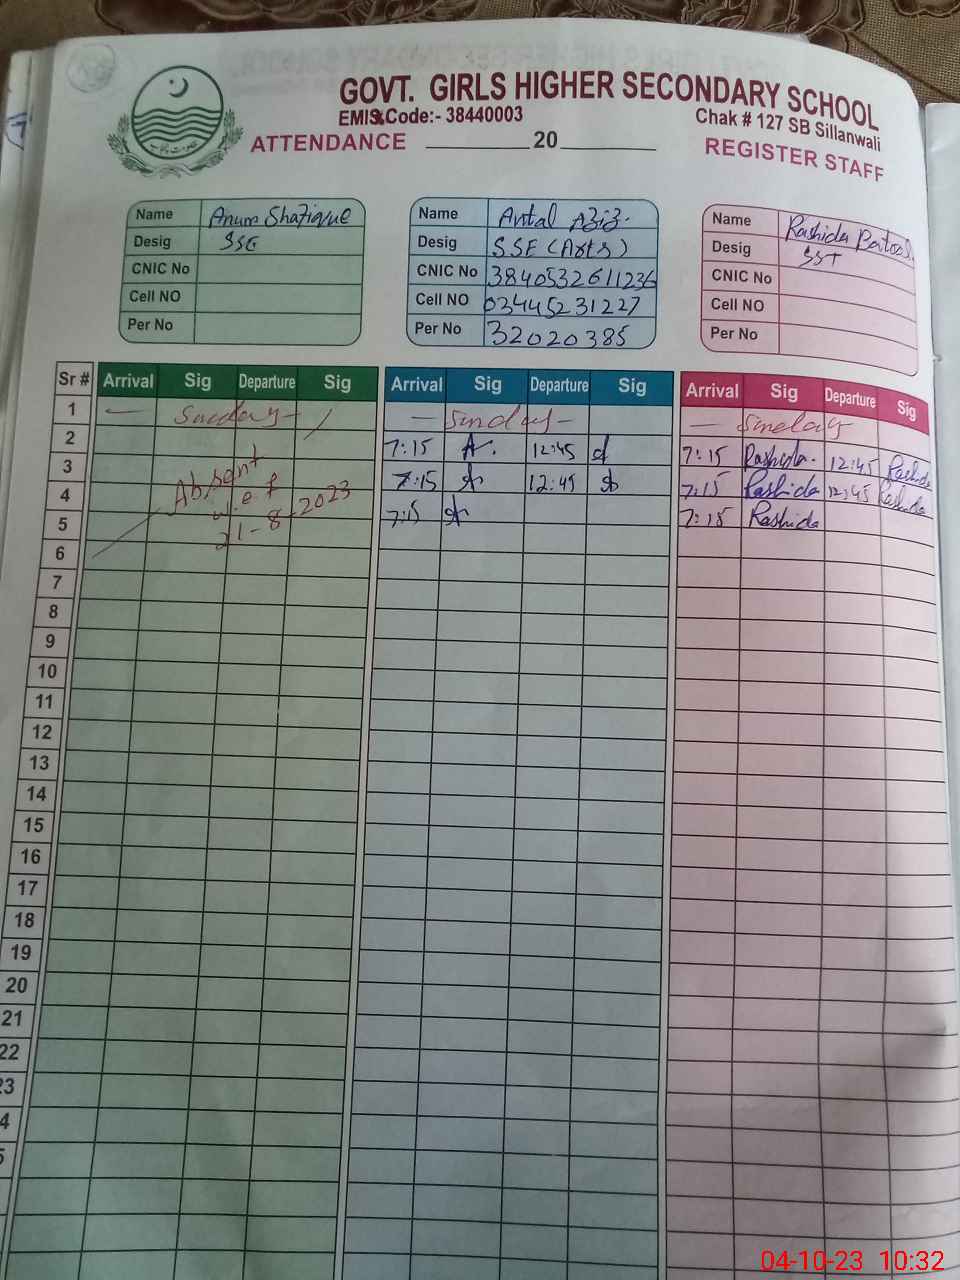 GOVT. GIRLS HIGHER SECONDARY SCHOOL
EMIS Code:- 38440003
Chak # 127 SB Sillanwali
ATTENDANCE ________ 20 ________
REGISTER STAFF
Name Anum Shafique
Desig SSE
CNIC No
Cell NO
Per No
Name Aziz
Desig SSE (Arts)
CNIC No 3840532611236
Cell NO 03445231227
Per No 32020385
Name Rashida Batool
Desig SST
CNIC No
Cell NO
Per No
Sr # Arrival Sig Departure Sig Arrival Sig Departure Sig Arrival Sig Departure Sig
1 — Sunday — — Sunday — — Sunday
2 7:15 12:45 7:15 Rashida. 12:45 Rashida
3 Absent 7:15 12:45 7:15 Rashida 12:45 Rashida
4 w.e.f 7:15 7:15 Rashida
5 21-8-2023
6
7
8
9
10
11
12
13
14
15
16
17
18
19
20
21
22
23
4
5
04-10-23 10:32